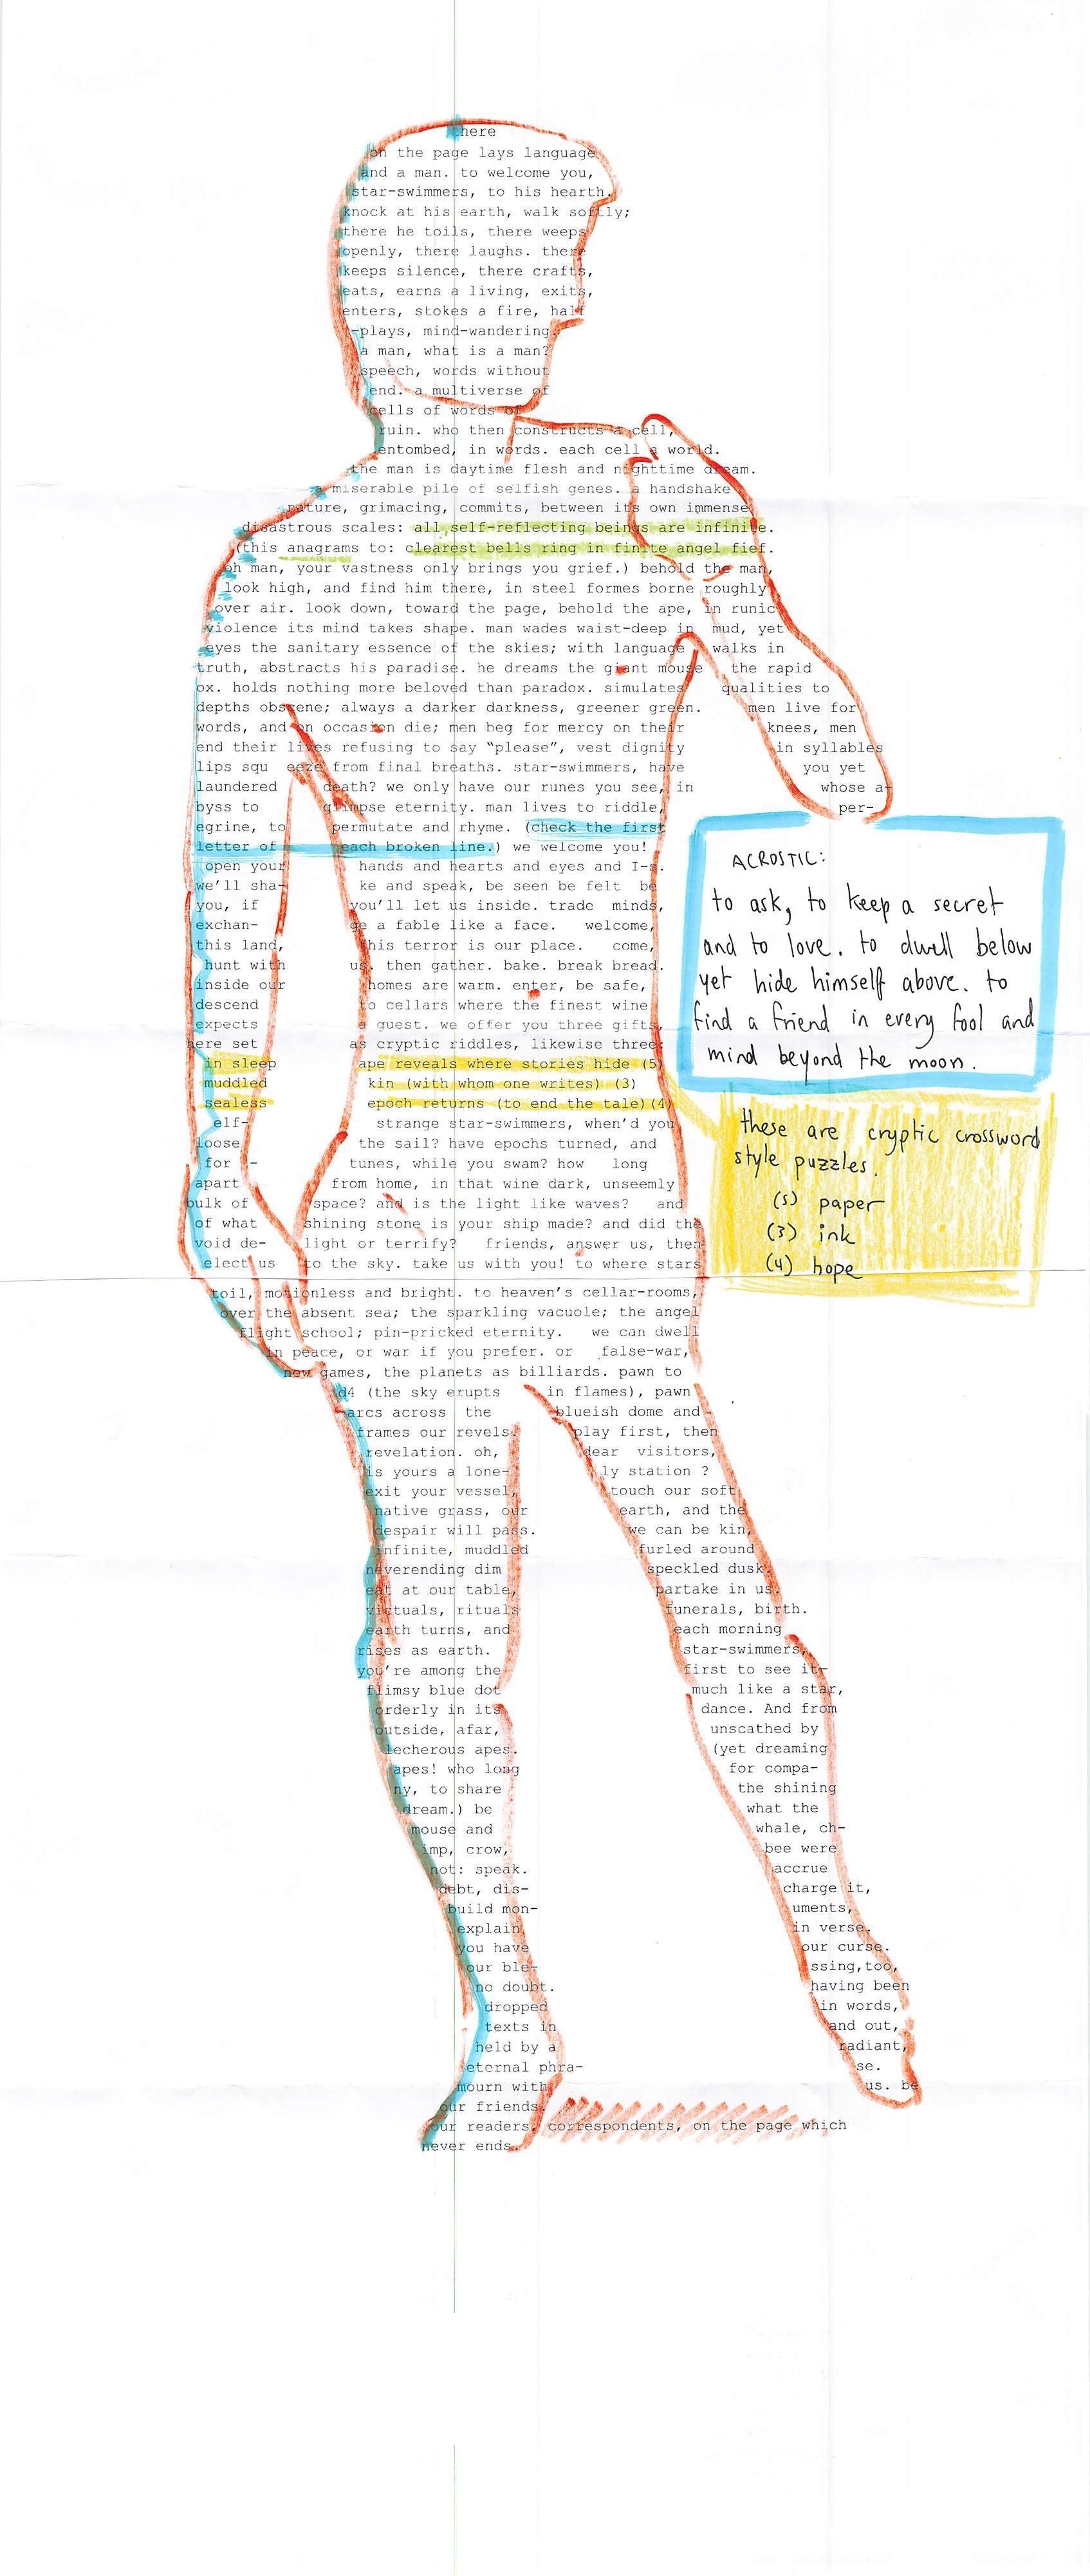 there
on the page lays language
and a man. to welcome you,
star-swimmers, to his hearth.
knock at his earth, walk softly;
there he toils, there weeps
openly, there laughs. there
keeps silence, there crafts,
eats, earns a living, exits,
enters, stokes a fire, half
-plays, mind-wandering.
a man, what is a man?
speech, words without
end. a multiverse of
cells of words of
ruin. who then constructs a cell,
entombed, in words. each cell a world.
the man is daytime flesh and nighttime dream.
a miserable pile of selfish genes. a handshake
nature, grimacing, commits, between its own immense
disastrous scales: all self-reflecting beings are infinite.
(this anagrams to: clearest bells ring in finite angel fief.
oh man, your vastness only brings you grief.) behold the man,
look high, and find him there, in steel formes borne roughly
over air. look down, toward the page, behold the ape, in runic
violence its mind takes shape. man wades waist-deep in mud, yet
eyes the sanitary essence of the skies; with language walks in
truth, abstracts his paradise. he dreams the giant mouse the rapid
ox. holds nothing more beloved than paradox. simulates qualities to
depths obscene; always a darker darkness, greener green. men live for
words, and on occasion die; men beg for mercy on their knees, men
end their lives refusing to say “please”, vest dignity in syllables
lips squ eeze from final breaths. star-swimmers, have you yet
laundered death? we only have our runes you see, in whose a-
byss to glimpse eternity. man lives to riddle, per-
egrine, to permutate and rhyme. (check the first
letter of each broken line.) we welcome you!
open your hands and hearts and eyes and I-s.
we'll sha- ke and speak, be seen be felt be
you, if you'll let us inside. trade minds,
exchan- ge a fable like a face. welcome,
this land, this terror is our place. come,
hunt with us. then gather. bake. break bread.
inside our homes are warm. enter, be safe,
descend to cellars where the finest wine
expects a guest. we offer you three gifts,
here set as cryptic riddles, likewise three:
in sleep ape reveals where stories hide (5)
muddled kin (with whom one writes) (3)
sealess epoch returns (to end the tale)(4)
elf- strange star-swimmers, when'd you
loose the sail? have epochs turned, and
for - tunes, while you swam? how long
apart from home, in that wine dark, unseemly
bulk of space? and is the light like waves? and
of what shining stone is your ship made? and did the
void de- light or terrify? friends, answer us, then
elect us to the sky. take us with you! to where stars
toil, motionless and bright. to heaven's cellar-rooms,
over the absent sea; the sparkling vacuole; the angel
flight school; pin-pricked eternity. we can dwell
in peace, or war if you prefer. or false-war,
new games, the planets as billiards. pawn to
d4 (the sky erupts in flames), pawn
arcs across the blueish dome and
frames our revels. play first, then
revelation. oh, dear visitors,
is yours a lone- ly station ?
exit your vessel, touch our soft
native grass, our earth, and the
despair will pass. we can be kin,
infinite, muddled furled around
neverending dim speckled dusk.
eat at our table, partake in us.
victuals, rituals funerals, birth.
earth turns, and each morning
rises as earth. star-swimmers,
you're among the first to see it-
flimsy blue dot much like a star,
orderly in its dance. And from
outside, afar, unscathed by
lecherous apes. (yet dreaming
apes! who long for compa-
ny, to share the shining
dream.) be what the
mouse and whale, ch-
imp, crow, bee were
not: speak. accrue
debt, dis- charge it,
build mon- uments,
explain in verse.
you have our curse.
our ble- ssing,too,
no doubt. having been
dropped in words,
texts in and out,
held by a radiant,
eternal phra- se.
mourn with us. be
our friends.
our readers, correspondents, on the page which
never ends.
ACROSTIC:
to ask, to keep a secret
and to love. to dwell below
yet hide himself above. to
find a friend in every fool and
mind beyond the moon.
these are cryptic crossword
style puzzles.
(5) paper
(3) ink
(4) hope